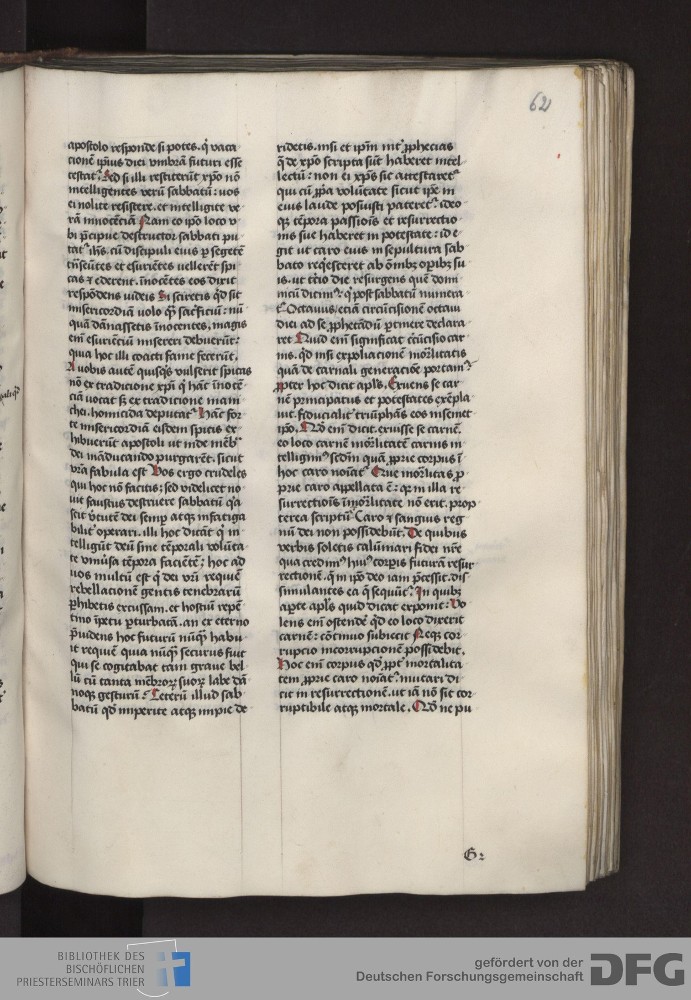 62
apostolo responde si potes. q̇ vaca
cionē ip̄ius diei vmbrā futuri esse
testat᷑. Sed si illi restiterūt xp̄o nō
intelligentes verū sabbatū: vos
ei nolite resistere. et intelligite ve
rā innocēciā Nam eo ip̄o loco v
bi p̄cipue destructor sabbati pu
tat᷑ ih̄s. cū discipuli eius ꝑ segetē
trāseūtes et esuriētes vellerēt spi
cas ⁊ ederent. inocētes eos dixit
respōdens iudeis Si sciretis qd̄ sit
misericordiā volo q̄ sac̄ficiū: nū
quā dānassetis inocentes. magis
em̄ esuriētiū misereri debuerūt:
qua hoc illi coacti fame fecerūt.
A vobis autē quisq̄s vulserit spicas
nō ex tradicione xp̄i q̄ hāc īnotē
ciā vocat s̄ ex tradicione mani
chei. homicida deputat᷑ Hāc for
te misericordiā eisdem spicis ex
hibuerūt apostoli ut inde mēb᷑
dei māducando purgarēt. sicut
vr̄a fabula est Vos ergo crudeles
qui hoc nō facitis: sed videlicet no
uit faustus destruere sabbatū q᷑a
scit v̄tutē dei semꝑ atqꝫ infatiga
bilit᷑ operari. illi hoc dicāt q̇ in
telligūt deū sine tēporali volūta
te vniūsa tēpora faciētē: hoc ad
uos multū est q̇ dei vr̄i requiē
rebellacionē gentis tenebrarū
ꝑhibetis excussam. et hostiū repē
tino īpetu ꝑturbatā. an ex eterno
p̄uidens hoc futurū nūq̄ habu
it requiē quia nūq̄ securus fuit
qui se cogitabat tam graue bel
lū cū tanta mēbroꝝ suoꝝ labe dā
noqꝫ gesturū: Ceterū illud sab
batū qd̄ imperite atqꝫ impie de
ridetis. nisi et ip̄m int᷑ ꝓphecias
q̄ de xp̄o scripta sūt haberet intel
lectū: non ei xp̄s sic attestaret᷑
qui cū ꝓp̄a volūtate sicut ip̄e in
eius laude posuisti pateret᷑: ideo
qꝫ tēpora passiōis et resurrectio
nis sue haberet in potestate: id e
git ut caro eius in sepultura sab
bato req̇esceret ab ōmibꝫ oꝑibꝫ su
is. ut tēio die resurgens quē domi
nicū dicim᷒: q̇ post sabbatū numera
t᷑ Octauus/ etiā circūcisionē octaui
diei ad se ꝓphetādū ꝑtinere declara
ret Quid em̄ significat c̄cūcisio car
nis. qd̄ nisi expoliacionē mōrlitatis
quā de carnali generacioē portam᷒
ꝓpter hoc dicit apl̄s. Exuens se car
nē principatus et potestates exēpla
uit. fiducialit᷑ triūphās eos misemet
ip̄o. Nō em̄ dicit. exuisse se carnē.
eo loco carnē mōrlitatē carnis in
telligim᷒ scd̄m quā ꝓprie corpus ī
hoc caro noīat᷑ Que mōrlitas ꝓ
prie caro appellata ē: qꝛ in illa re
surrectiōis īmōrlitate nō erit. prop
terea scriptū Caro ⁊ sangius reg
nū dei non possidebūt. De quibus
verbis soletis calūmari fidei nr̄e
qua credim᷒ hui᷒ corꝑis futurā resur
rectionē. q̄ in ip̄o deo iam p̄cessit. dis
simulantes ea q̄ sequūt᷑. In quibꝫ
aꝑte apl̄s quid dicat exponit: Vo
lens em̄ ostendē qd̄ eo loco dixerit
carnē: cōtinuo subiecit Neqꝫ cor
rupcio incorrupcionē possidebit.
Hoc em̄ corpus qd̄ ꝓpt᷑ mortalita
tem. ꝓprie caro noīat᷑. mutari di
cit in resurrectionē. ut iā nō sit cor
ruptibile atqꝫ mortale. Qd̄ ne pu
G 2
BIBLIOTHEK DES
BISCHÖFLICHEN
PRIESTERSEMINARS TRIER
gefördert von der
Deutschen Forschungsgemeinschaft
DFG